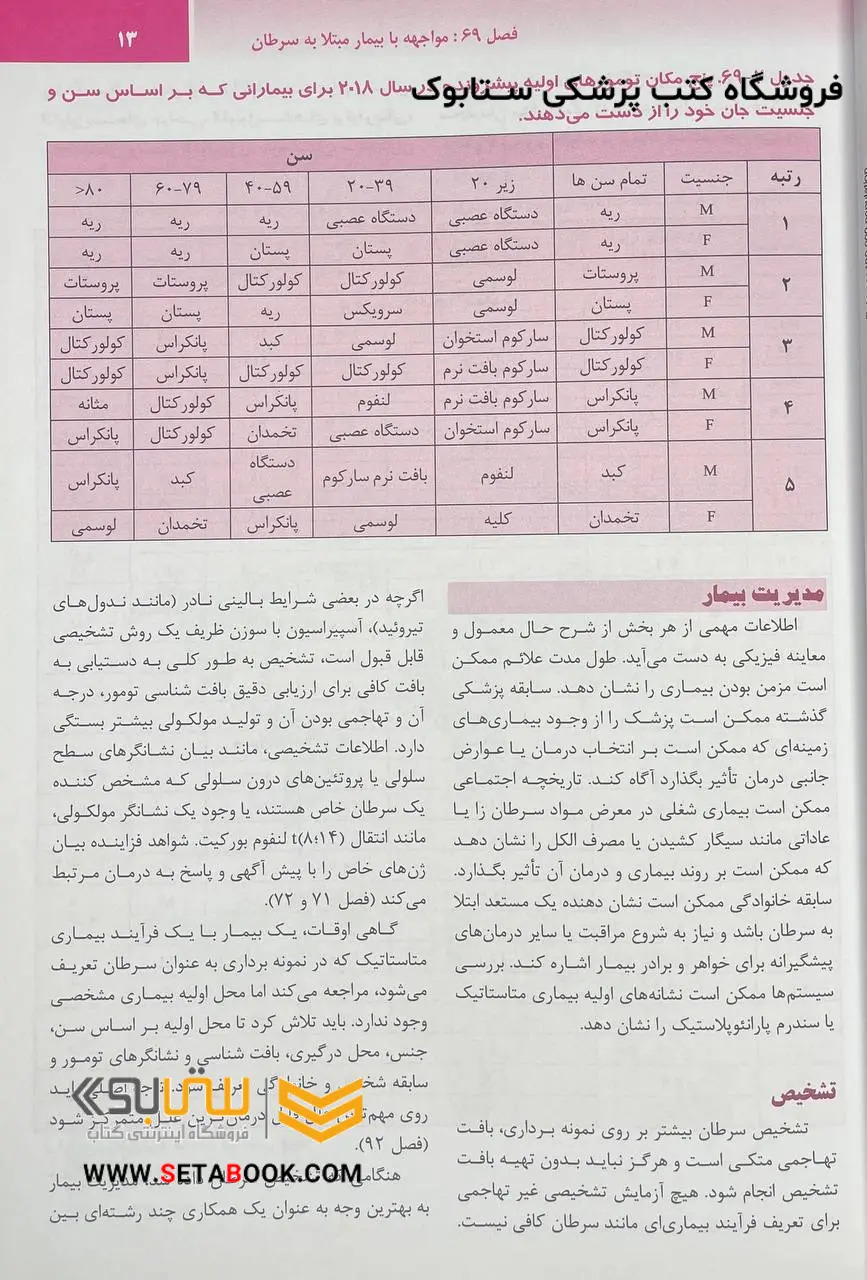 فصل ۶۹: مواجهه با بیمار مبتلا به سرطان ۱۳
فروشگاه کتب پزشکی ستابوک
جدول ۶۹ پنج مکان تومورهای اولیه در سال ۲۰۱۸ برای بیمارانی که بر اساس سن و
جنسیت جان خود را از دست می‌دهند.
سن
رتبه جنسیت تمام سن ها زیر ۲۰ ۲۰-۳۹ ۴۰-۵۹ ۶۰-۷۹ ۸۰<
۱ M ریه دستگاه عصبی دستگاه عصبی ریه ریه ریه
F ریه دستگاه عصبی پستان پستان ریه ریه
۲ M پروستات لوسمی کولورکتال کولورکتال پروستات پروستات
F پستان لوسمی سرویکس ریه پستان پستان
۳ M کولورکتال سارکوم استخوان لوسمی کبد پانکراس کولورکتال
F کولورکتال سارکوم بافت نرم کولورکتال کولورکتال پانکراس کولورکتال
۴ M پانکراس سارکوم بافت نرم لنفوم پانکراس کولورکتال مثانه
F پانکراس سارکوم استخوان دستگاه عصبی تخمدان کولورکتال پانکراس
۵ M کبد لنفوم بافت نرم سارکوم دستگاه عصبی کبد پانکراس
F تخمدان کلیه لوسمی پانکراس تخمدان لوسمی
مدیریت بیمار
اطلاعات مهمی از هر بخش از شرح حال معمول و
معاینه فیزیکی به دست می‌آید. طول مدت علائم ممکن
است مزمن بودن بیماری را نشان دهد. سابقه پزشکی
گذشته ممکن است پزشک را از وجود بیماری‌های
زمینه‌ای که ممکن است بر انتخاب درمان یا عوارض
جانبی درمان تأثیر بگذارد آگاه کند. تاریخچه اجتماعی
ممکن است بیماری شغلی در معرض مواد سرطان زا یا
عاداتی مانند سیگار کشیدن یا مصرف الکل را نشان دهد
که ممکن است بر روند بیماری و درمان آن تأثیر بگذارد.
سابقه خانوادگی ممکن است نشان دهنده یک مستعد ابتلا
به سرطان باشد و نیاز به شروع مراقبت یا سایر درمان‌های
پیشگیرانه برای خواهر و برادر بیمار اشاره کند. بررسی
سیستم‌ها ممکن است نشانه‌های اولیه بیماری متاستاتیک
یا سندرم پارانئوپلاستیک را نشان دهد.
تشخیص
تشخیص سرطان بیشتر بر روی نمونه برداری، بافت
تهاجمی متکی است و هرگز نباید بدون تهیه بافت
تشخیص انجام شود. هیچ آزمایش تشخیصی غیر تهاجمی
برای تعریف فرآیند بیماری‌ای مانند سرطان کافی نیست.
اگرچه در بعضی شرایط بالینی نادر (مانند ندول‌های
تیروئید)، آسپیراسیون با سوزن ظریف یک روش تشخیصی
قابل قبول است، تشخیص به طور کلی به دستیابی به
بافت کافی برای ارزیابی دقیق بافت شناسی تومور، درجه
آن و تهاجمی بودن آن و تولید مولکولی بیشتر بستگی
دارد. اطلاعات تشخیصی، مانند بیان نشانگرهای سطح
سلولی یا پروتئین‌های درون سلولی که مشخص کننده
یک سرطان خاص هستند، یا وجود یک نشانگر مولکولی،
مانند انتقال t(۸;۱۴) لنفوم بورکیت. شواهد فزاینده بیان
ژن‌های خاص را با پیش آگهی و پاسخ به درمان مرتبط
می‌کند (فصل ۷۱ و ۷۲).
گاهی اوقات، یک بیمار با یک فرآیند بیماری
متاستاتیک که در نمونه برداری به عنوان سرطان تعریف
می‌شود، مراجعه می‌کند اما محل اولیه بیماری مشخصی
وجود ندارد. باید تلاش کرد تا محل اولیه بر اساس سن،
جنس، محل درگیری، بافت شناسی و نشانگرهای تومور و
سابقه و خانوادگی تعریف شود. باید
روی درمان‌ترین علل متمرکز شود
(فصل ۹۲).
هنگامی مدیریت بیمار
به بهترین وجه به عنوان یک همکاری چند رشته‌ای بین
ستابوک
فروشگاه اینترنتی کتاب
WWW.SETABOOK.COM